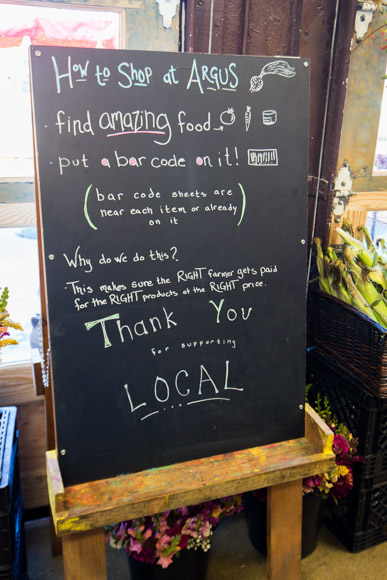 How to Shop at ARGUS
· find amazing food→
· put a bar code on it!
(bar code sheets are
near each item or already
on it)
Why do we do this?
·This makes sure the RIGHT farmer gets paid
for the RIGHT products at the RIGHT price.
Thank You
for supporting
LOCAL